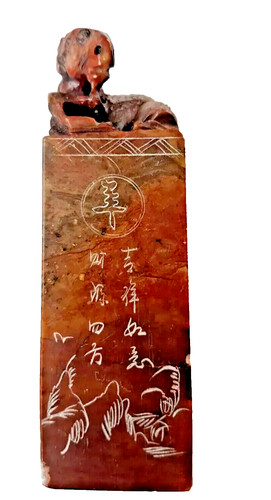 吉祥如意
财源四方